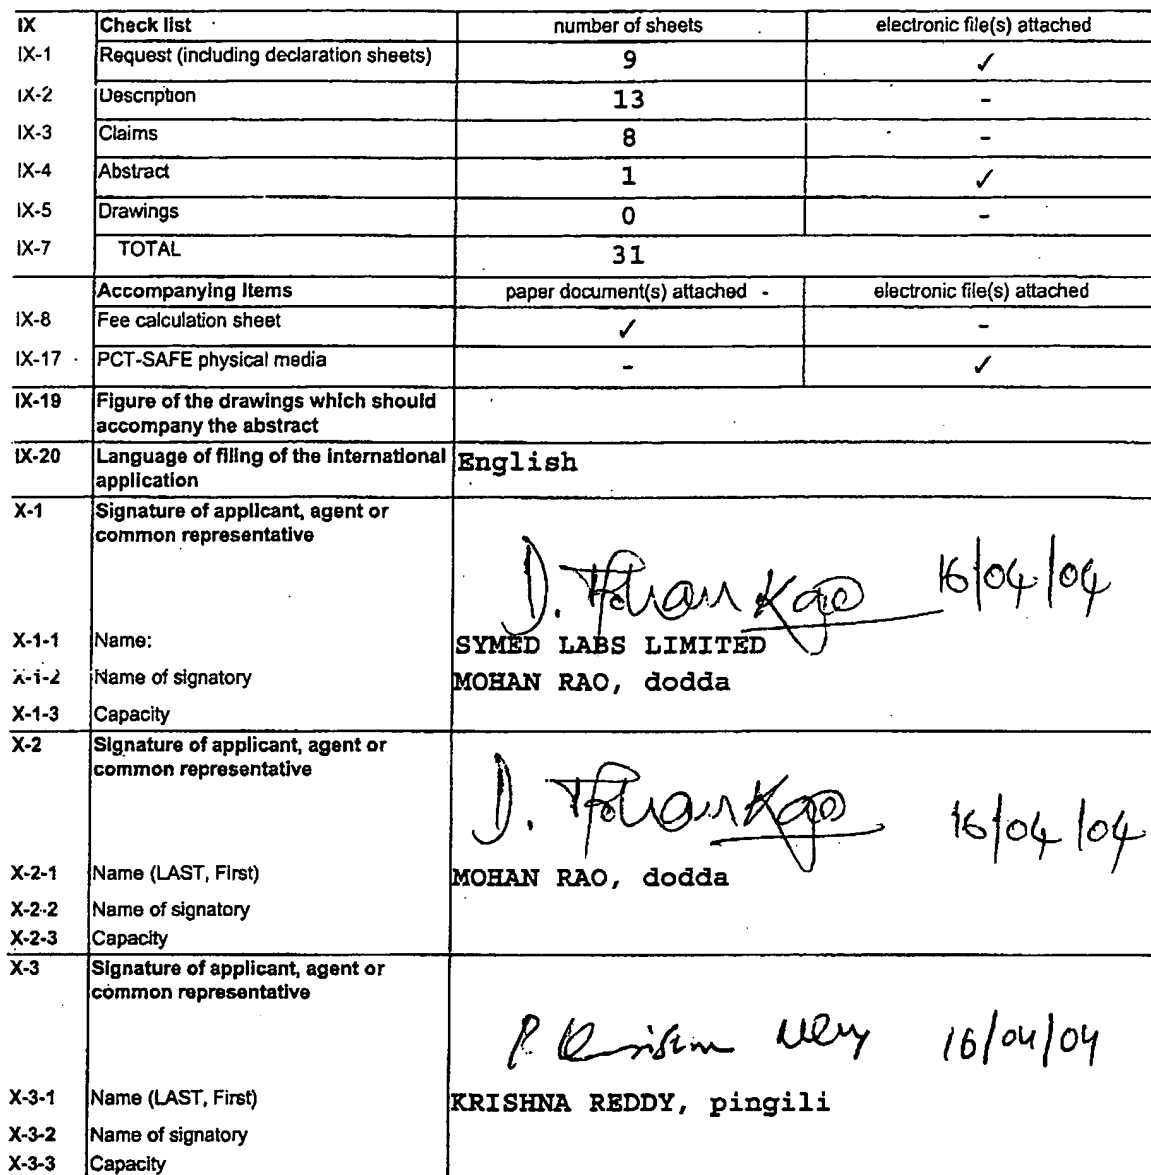 IX Check list number of sheets electronic file(s) attached
IX-1 Request (including declaration sheets) 9 ✓
IX-2 Description 13 -
IX-3 Claims 8 -
IX-4 Abstract 1 ✓
IX-5 Drawings 0 -
IX-7 TOTAL 31
Accompanying Items paper document(s) attached electronic file(s) attached
IX-8 Fee calculation sheet ✓ -
IX-17 PCT-SAFE physical media - ✓
IX-19 Figure of the drawings which should
accompany the abstract
IX-20 Language of filing of the international English
application
X-1 Signature of applicant, agent or
common representative
D. Mohan Rao 16/04/04
X-1-1 Name: SYMED LABS LIMITED
X-1-2 Name of signatory MOHAN RAO, dodda
X-1-3 Capacity
X-2 Signature of applicant, agent or
common representative
D. Mohan Rao 16/04/04
X-2-1 Name (LAST, First) MOHAN RAO, dodda
X-2-2 Name of signatory
X-2-3 Capacity
X-3 Signature of applicant, agent or
common representative
P. Krishna Reddy 16/04/04
X-3-1 Name (LAST, First) KRISHNA REDDY, pingili
X-3-2 Name of signatory
X-3-3 Capacity